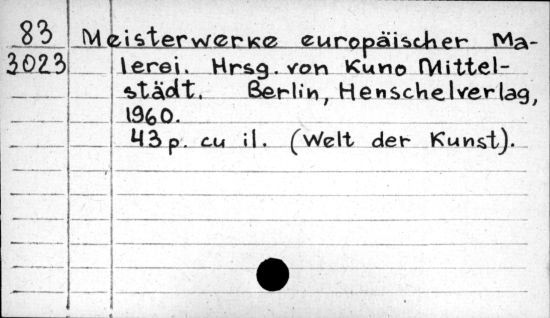 83 Meisterwerke europäischer Ma-
3023 lerei. Hrsg. von Kuno Mittel-
städt. Berlin, Henschelverlag,
1960.
43 p. cu il. (Welt der Kunst).